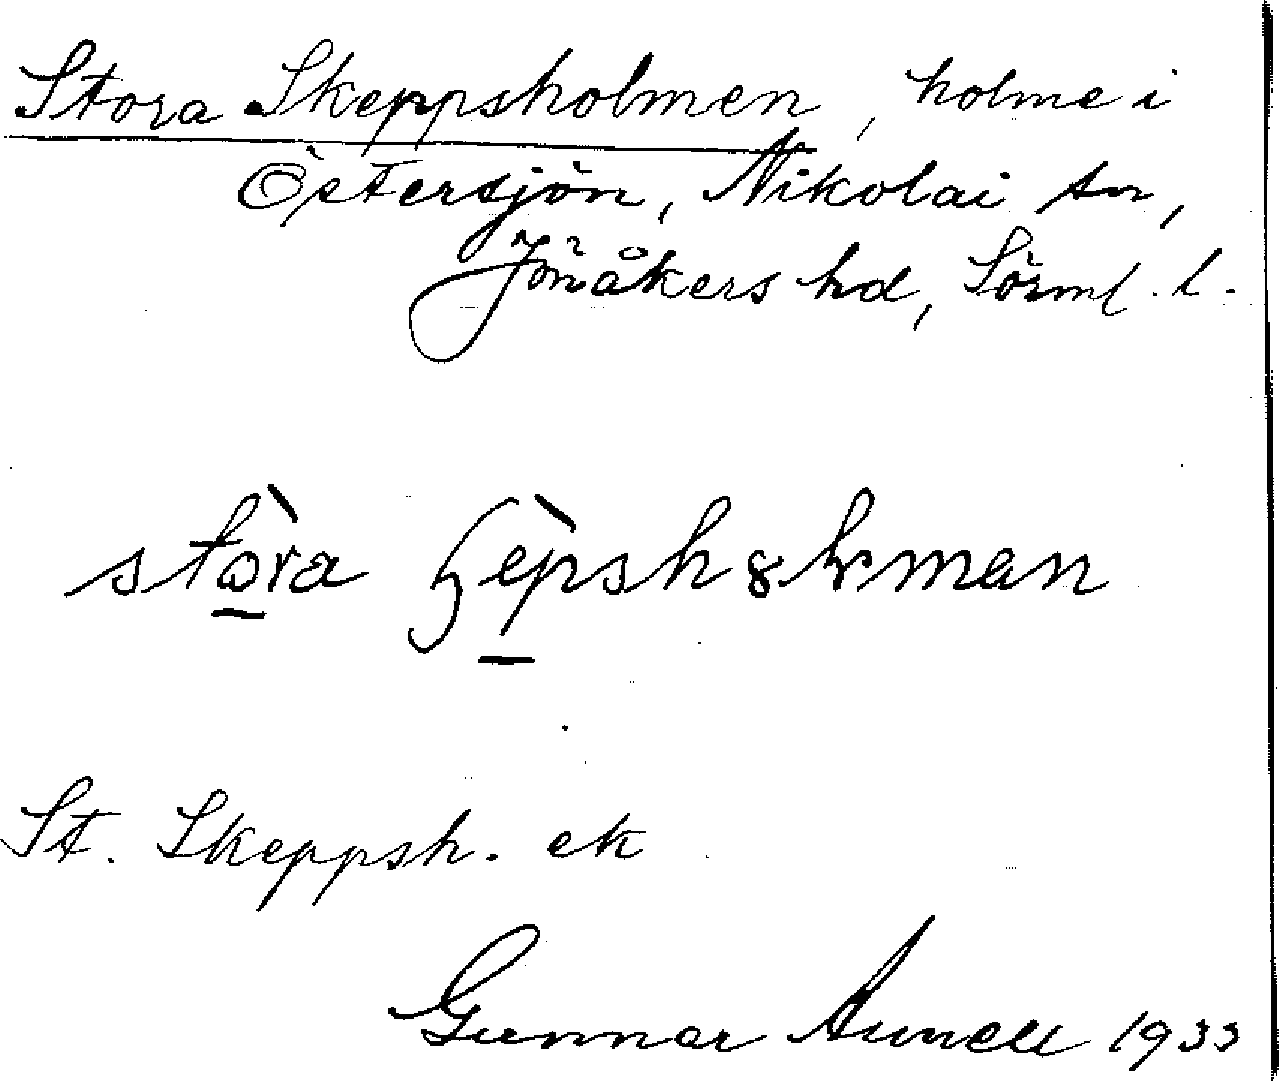 Stora Skeppsholmen, holme i
Östersjön, Nikolai sn,
Jönåkers hd, Sörml. l.
stòra
St. Skeppsh. ek
Gunnar 1933